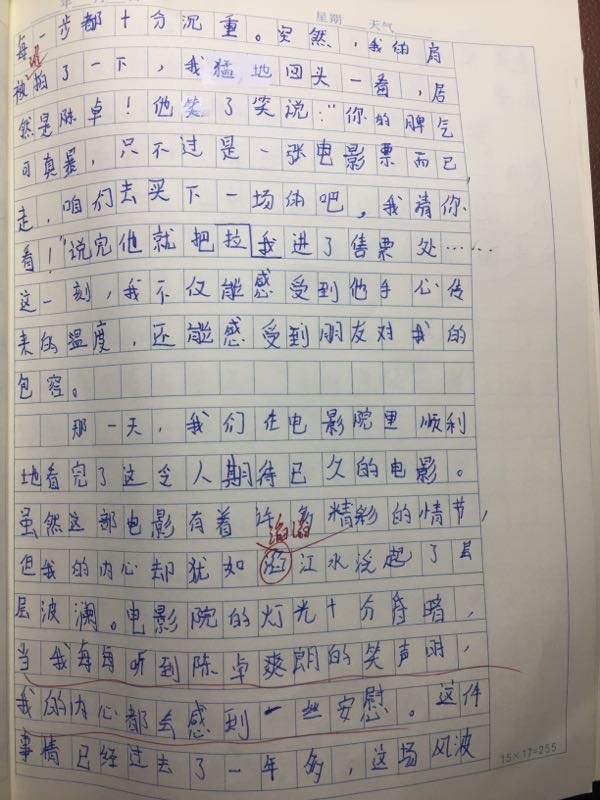 年
星期 天气
每一步都十分沉重。突然,我的肩
被拍了一下,我猛地回头一看,居
然是陈卓!他笑了笑说:“你的脾气
可真暴,只不过是一张电影票而已,
走,咱们去买下一场的吧,我请你
看!”说完他就把拉我进了售票处……
这一刻,我不仅能感受到他手心传
来的温度,还能感受到朋友对我的
包容。
那一天,我们在电影院里顺利
地看完了这令人期待已久的电影。
虽然这部电影有着许多精彩的情节,
但我的内心却犹如江水泛起了层
层波澜。电影院的灯光十分昏暗,
当我每每听到陈卓爽朗的笑声时,
我的内心都会感到一丝安慰。这件
事情已经过去了一年多,这场风波
15×17=255